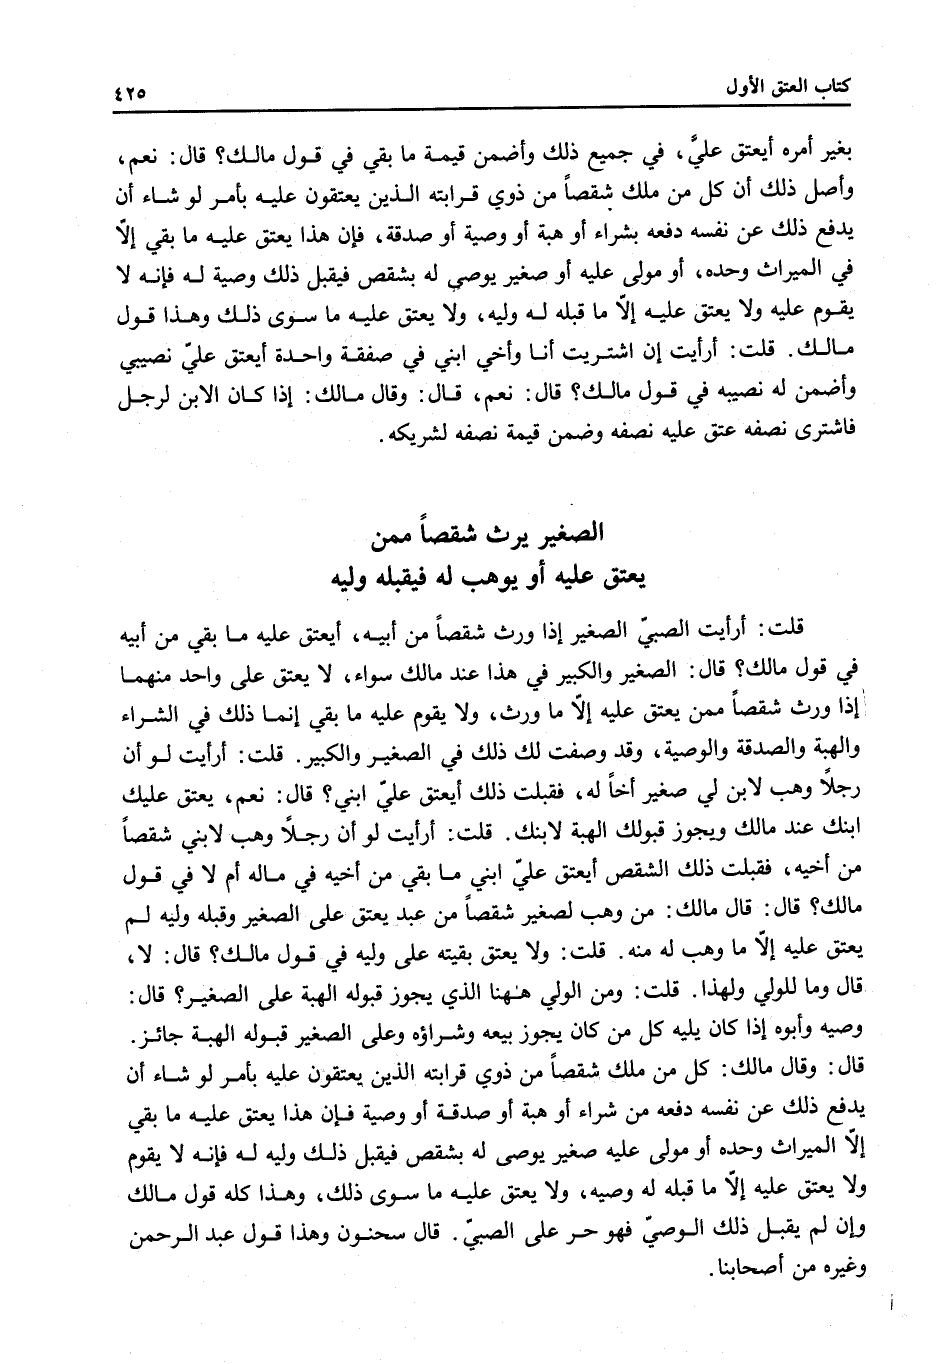 كتاب العتق الأول
٤٢٥
بغير أمره أيعتق عليَّ، في جميع ذلك وأضمن قيمة ما بقي في قول مالك؟ قال: نعم،
وأصل ذلك أن كل من ملك شقصاً من ذوي قرابته الذين يعتقون عليه بأمر لو شاء أن
يدفع ذلك عن نفسه دفعه بشراء أو هبة أو وصية أو صدقة، فإن هذا يعتق عليه ما بقي إلّا
في الميراث وحده، أو مولى عليه أو صغير يوصي له بشقص فيقبل ذلك وصية له فإنه لا
يقوم عليه ولا يعتق عليه إلّا ما قبله له وليه، ولا يعتق عليه ما سوى ذلك وهذا قول
مالك. قلت: أرأيت إن اشتريت أنا وأخي ابني في صفقة واحدة أيعتق عليّ نصيبي
وأضمن له نصيبه في قول مالك؟ قال: نعم، قال: وقال مالك: إذا كان الابن لرجل
فاشترى نصفه عتق عليه نصفه وضمن قيمة نصفه لشريكه.
الصغير يرث شقصاً ممن
يعتق عليه أو يوهب له فيقبله وليه
قلت: أرأيت الصبيّ الصغير إذا ورث شقصاً من أبيه، أيعتق عليه ما بقي من أبيه
في قول مالك؟ قال: الصغير والكبير في هذا عند مالك سواء، لا يعتق على واحد منهما
إذا ورث شقصاً ممن يعتق عليه إلّا ما ورث، ولا يقوم عليه ما بقي إنما ذلك في الشراء
والهبة والصدقة والوصية، وقد وصفت لك ذلك في الصغير والكبير. قلت: أرأيت لو أن
رجلاً وهب لابن لي صغير أخاً له، فقبلت ذلك أيعتق عليّ ابني؟ قال: نعم، يعتق عليك
ابنك عند مالك ويجوز قبولك الهبة لابنك. قلت: أرأيت لو أن رجلاً وهب لابني شقصاً
من أخيه، فقبلت ذلك الشقص أيعتق عليّ ابني ما بقي من أخيه في ماله أم لا في قول
مالك؟ قال: قال مالك: من وهب لصغير شقصاً من عبد يعتق على الصغير وقبله وليه لم
يعتق عليه إلّا ما وهب له منه. قلت: ولا يعتق بقيته على وليه في قول مالك؟ قال: لا،
قال وما للولي ولهذا. قلت: ومن الولي هٰهنا الذي يجوز قبوله الهبة على الصغير؟ قال:
وصيه وأبوه إذا كان يليه كل من كان يجوز بيعه وشراؤه وعلى الصغير قبوله الهبة جائز.
قال: وقال مالك: كل من ملك شقصاً من ذوي قرابته الذين يعتقون عليه بأمر لو شاء أن
يدفع ذلك عن نفسه دفعه من شراء أو هبة أو صدقة أو وصية فإن هذا يعتق عليه ما بقي
إلّا الميراث وحده أو مولى عليه صغير يوصى له بشقص فيقبل ذلك وليه له فإنه لا يقوم
ولا يعتق عليه إلّا ما قبله له وصيه، ولا يعتق عليه ما سوى ذلك، وهذا كله قول مالك
وإن لم يقبل ذلك الوصيّ فهو حر على الصبيّ. قال سحنون وهذا قول عبد الرحمن
وغيره من أصحابنا.